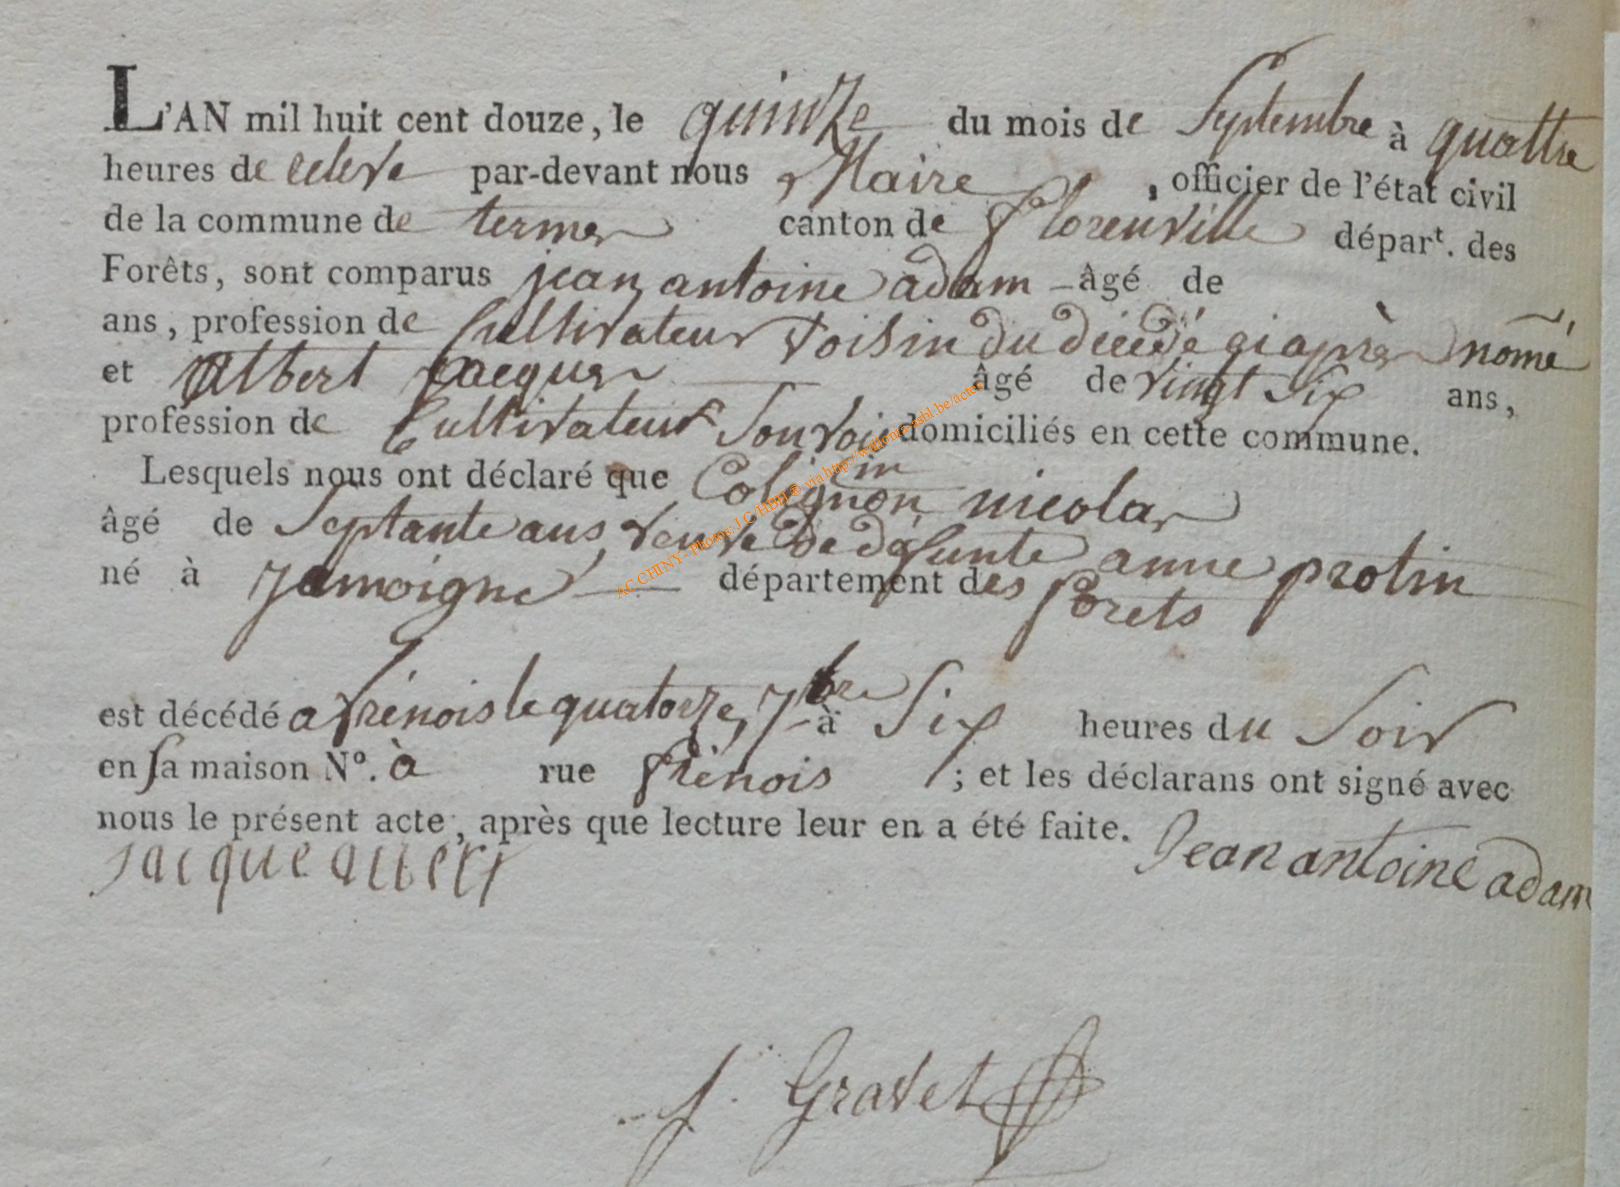 L'AN mil huit cent douze, le quinze du mois de Septembre à quattre
heures de releve par-devant nous Maire, officier de l'état civil
de la commune de termes canton de florenville départ. des
Forêts, sont comparus jean antoine adam âgé de
ans, profession de Cultivateur voisin du décédé ci après nomé
et Albert jacques âgé de vingt six ans,
profession de Cultivateur Son voisin domiciliés en cette commune.
Lesquels nous ont déclaré que Colignon in nicolas
âgé de Septante ans, veuve de defunte anne protin
né à jamoigne département des forets
est décédé a frénois le quatorze 7bre à Six heures du Soir
en sa maison N°. à rue frénois ; et les déclarans ont signé avec
nous le présent acte, après que lecture leur en a été faite.
jacque albert Jean antoine adam
f. Gravet
AC CHINY - Photos J.C. HBN ® via http://